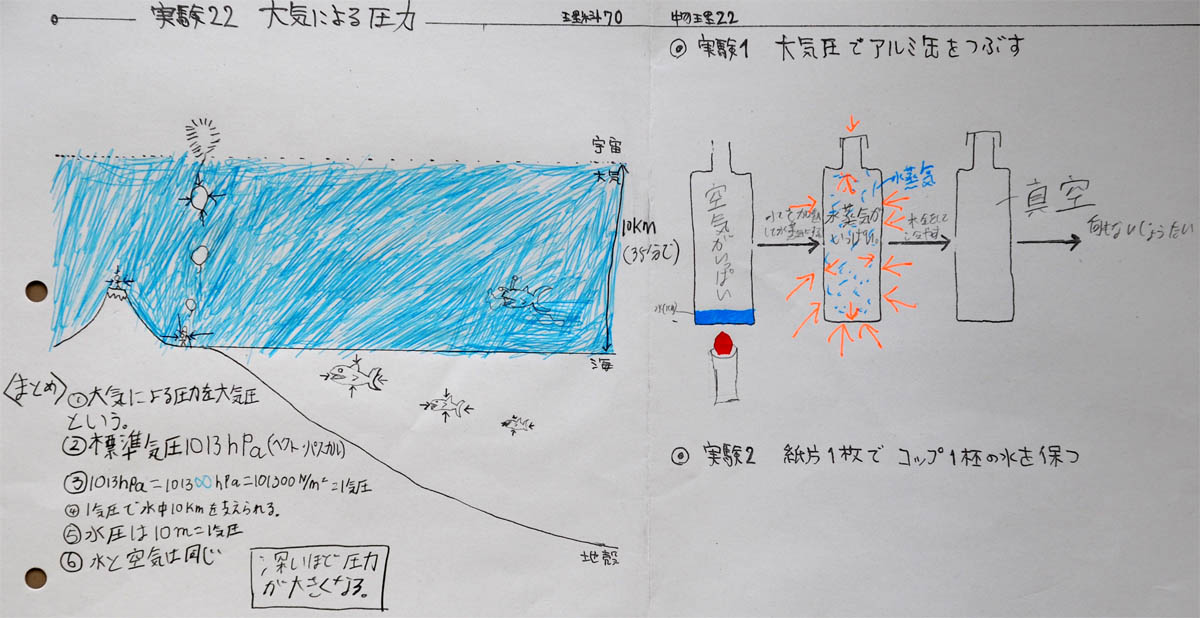 実験22 大気による圧力
理科70
物理22
宇宙
大気
10km
海
地殻
〈まとめ〉
①大気による圧力を大気圧
という。
②標準気圧1013hPa(ヘクト・パスカル)
③1013hPa=101300hPa=101300N/m²=1気圧
④1気圧で水中10Kmを支えられる。
⑤水圧は10m=1気圧
⑥水と空気は同じ
深いほど圧力
が大きくなる。
◎ 実験1 大気圧でアルミ缶をつぶす
空気がいっぱい
水蒸気
水蒸気が
いっぱい。
真空
何もないじょうたい
◎ 実験2 紙片1枚でコップ1杯の水を保つ